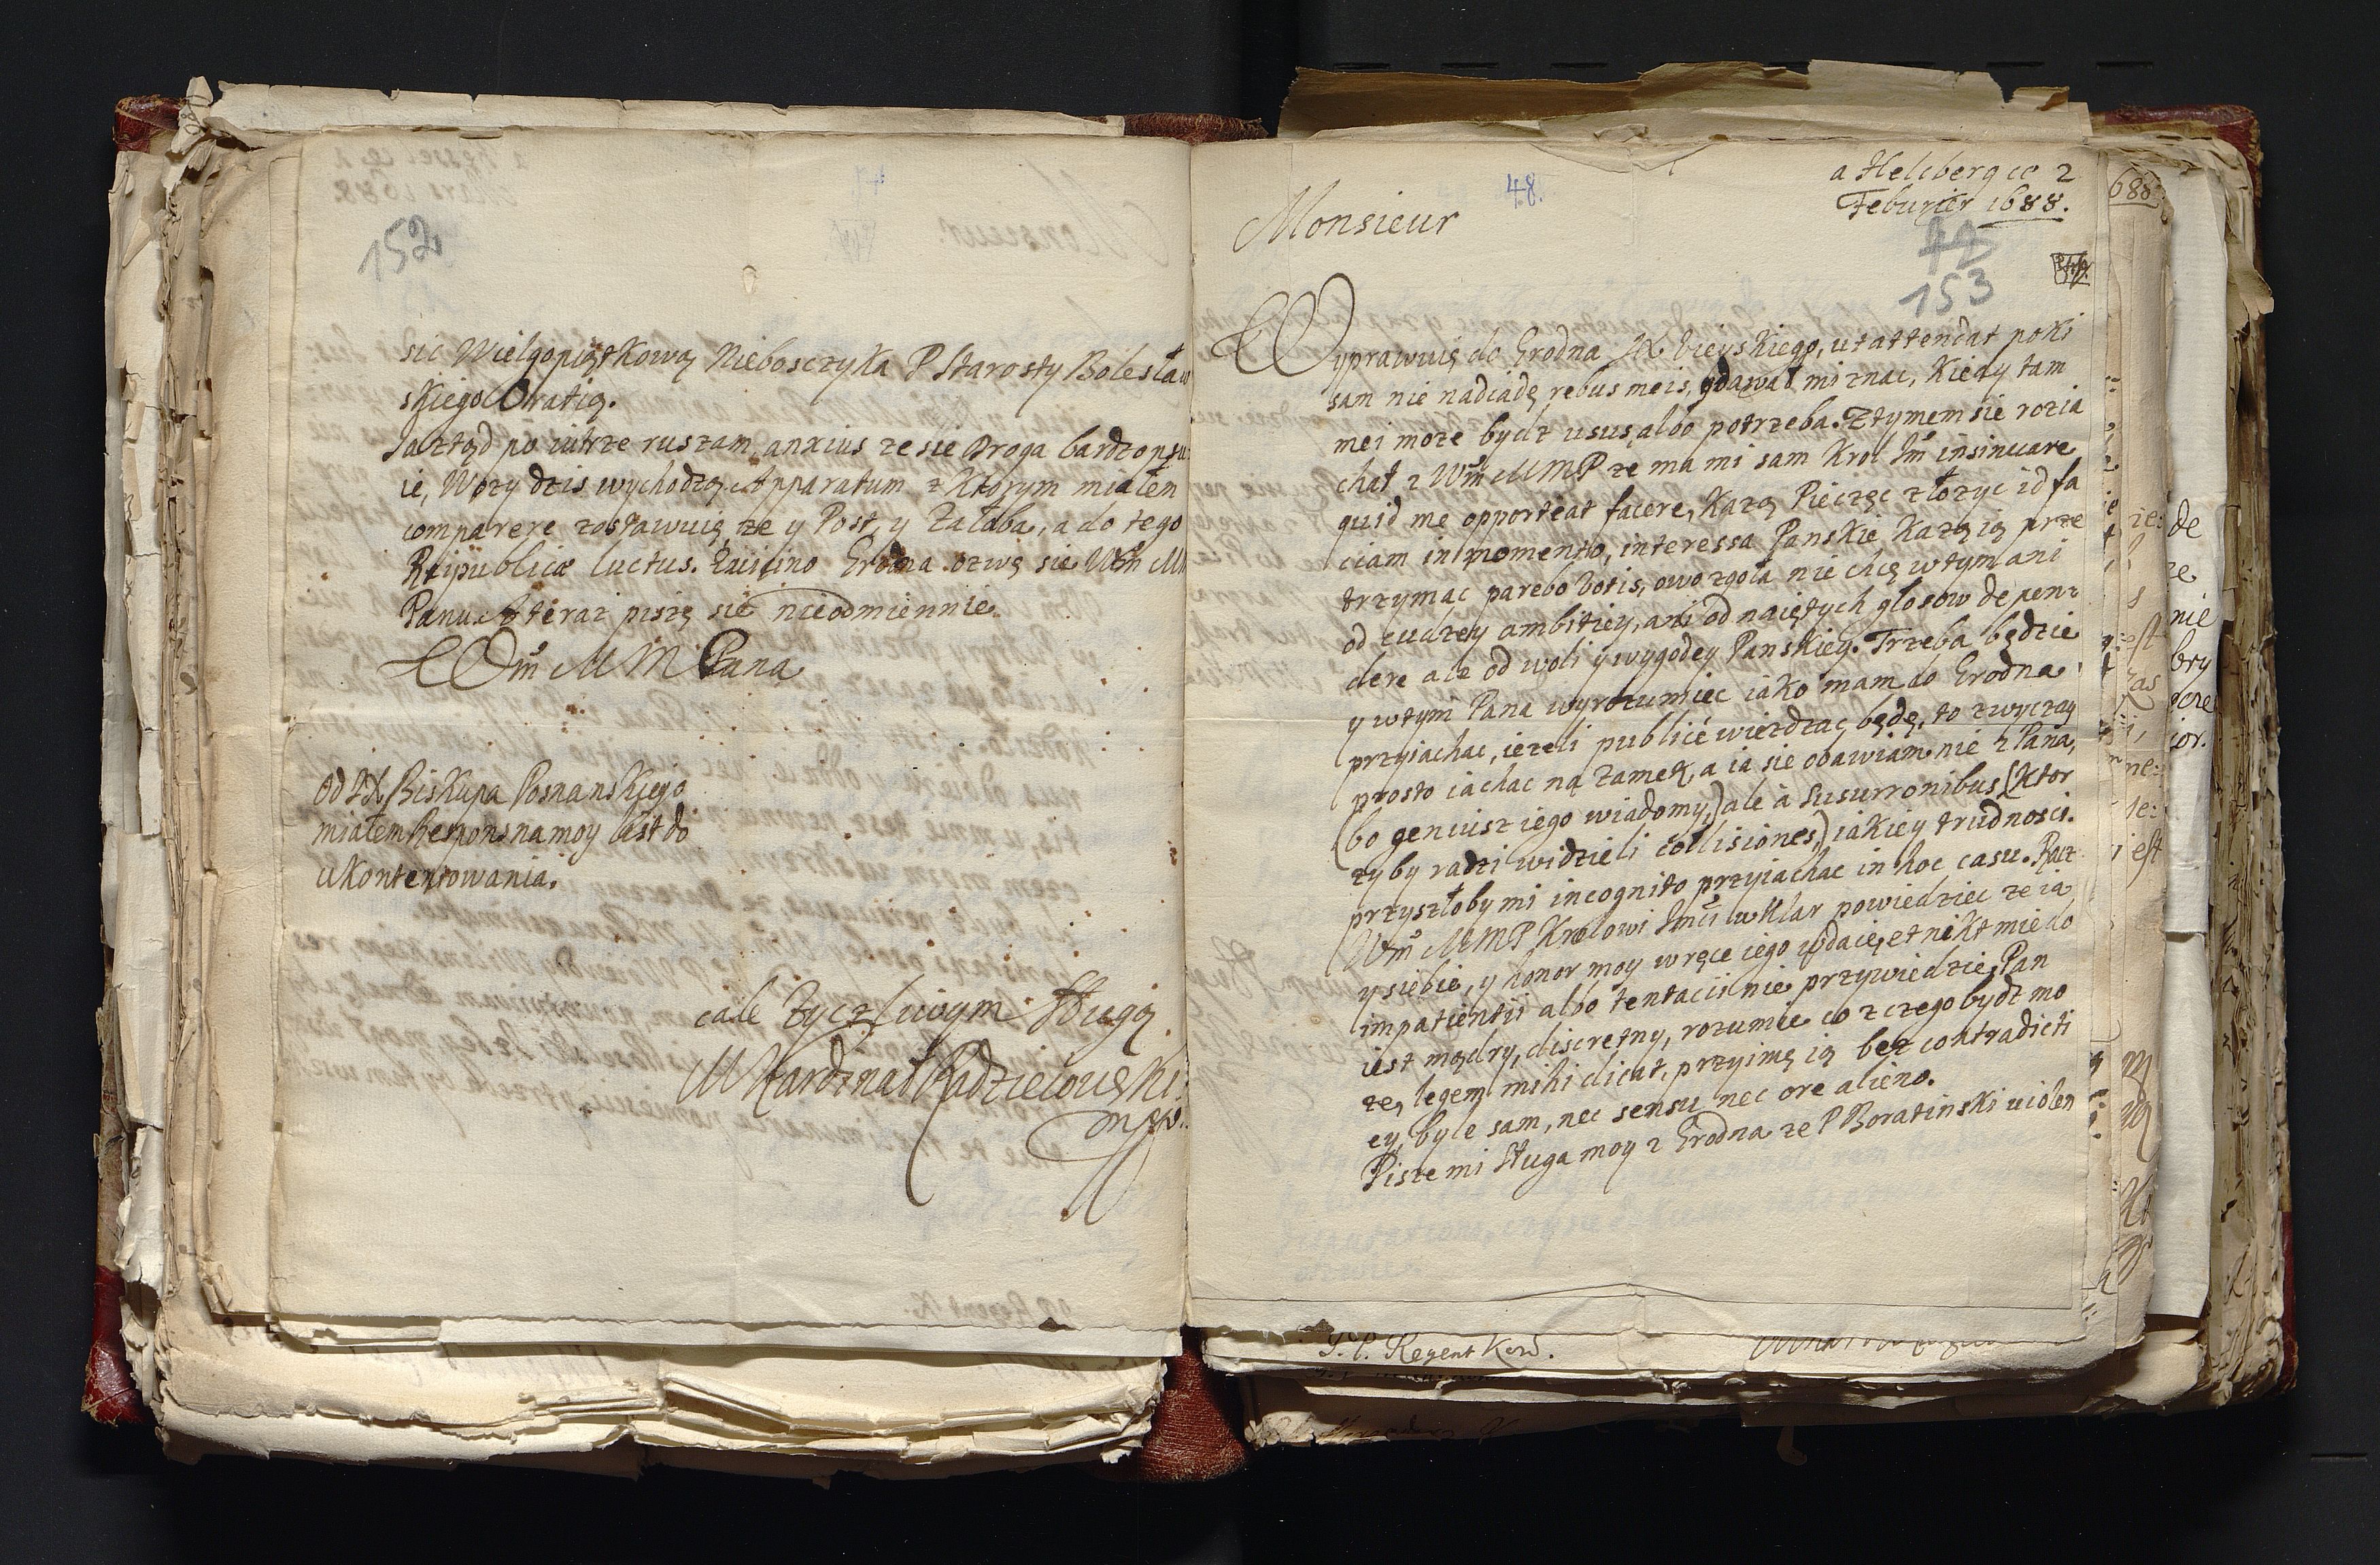 152
sie Wielgopiątkową Nieboszczyka P Starosty Bolesław
skiego Oratią.
Ja ztąd po iutrze ruszam, anxius ze sie Droga bardzo psu
ie, Wozy dzis wychodzą. Apparatum z Ktorym miałem
comparere zostawuię, ze y Post, y Załoba, a do tego
Reipublicæ luctus. Grodna ozwę sie Wm M
Panu. A teraz piszę się nieodmiennie
Wm M M Pana
Od JX Biskupa Posnanskiego
miałem Respons na moy List do
uKontentowania.
cale Zyczliwym Sługą
M Kardinał Radzieiowski
mp.
48.
a Helsberg ce 2
Feburier 1688.
Monsieur
153
Wyprawuię do Grodna JX Kieyskiego, ut attendat poki
sam nie nadiadę rebus meis, y dawał mi znac, Kiedy tam
mei moze bydz usus, albo potrzeba. Z tymem sie rozia
chał z Wm MMP ze ma mi sam Krol Jm insinuare
quid me opporteat facere, Kazą Pieczęc złozyc id fa
ciam in momento, interessa Panskie Kazą ią prze
trzymac parebo Votis, owo zgoła nie chcę w tym ani
od cudzey ambitiey, ani od naiętych głosow depen:
dere ale od woli y wygodey Panskiey. Trzeba będzie
y w tym Pana wyrozumiec iako mam do Grodna
przyiachac, iezeli publicé wiezdzac będę, to zwyczay
prosto iachac na Zamek, a ia sie obawiam nie z Pana,
(bo geniusz iego wiadomy,) ale à Susurronibus (Ktor
zy by radzi widzieli collisiones,) iakiey trudnosci.
przyszłoby mi incognito przyiachac in hoc casu. Racz
Wm MMP Krolowi Jmci w Klar powiedziec ze ia
y siebie, y honor moy w ręce iego wdaię, et nikt mie do
impatientii albo tentacii nie przywiedzie, Pan
iest mądry, discretny, rozumie co z czego bydz mo
ze, legem mihi dicat, przyimę ią bez contradicti
ey, byle sam, nec sensu nec ore alieno.
Pisze mi Sługa moy z Grodna ze P Boratinski violen
J.P. Regent Kor.